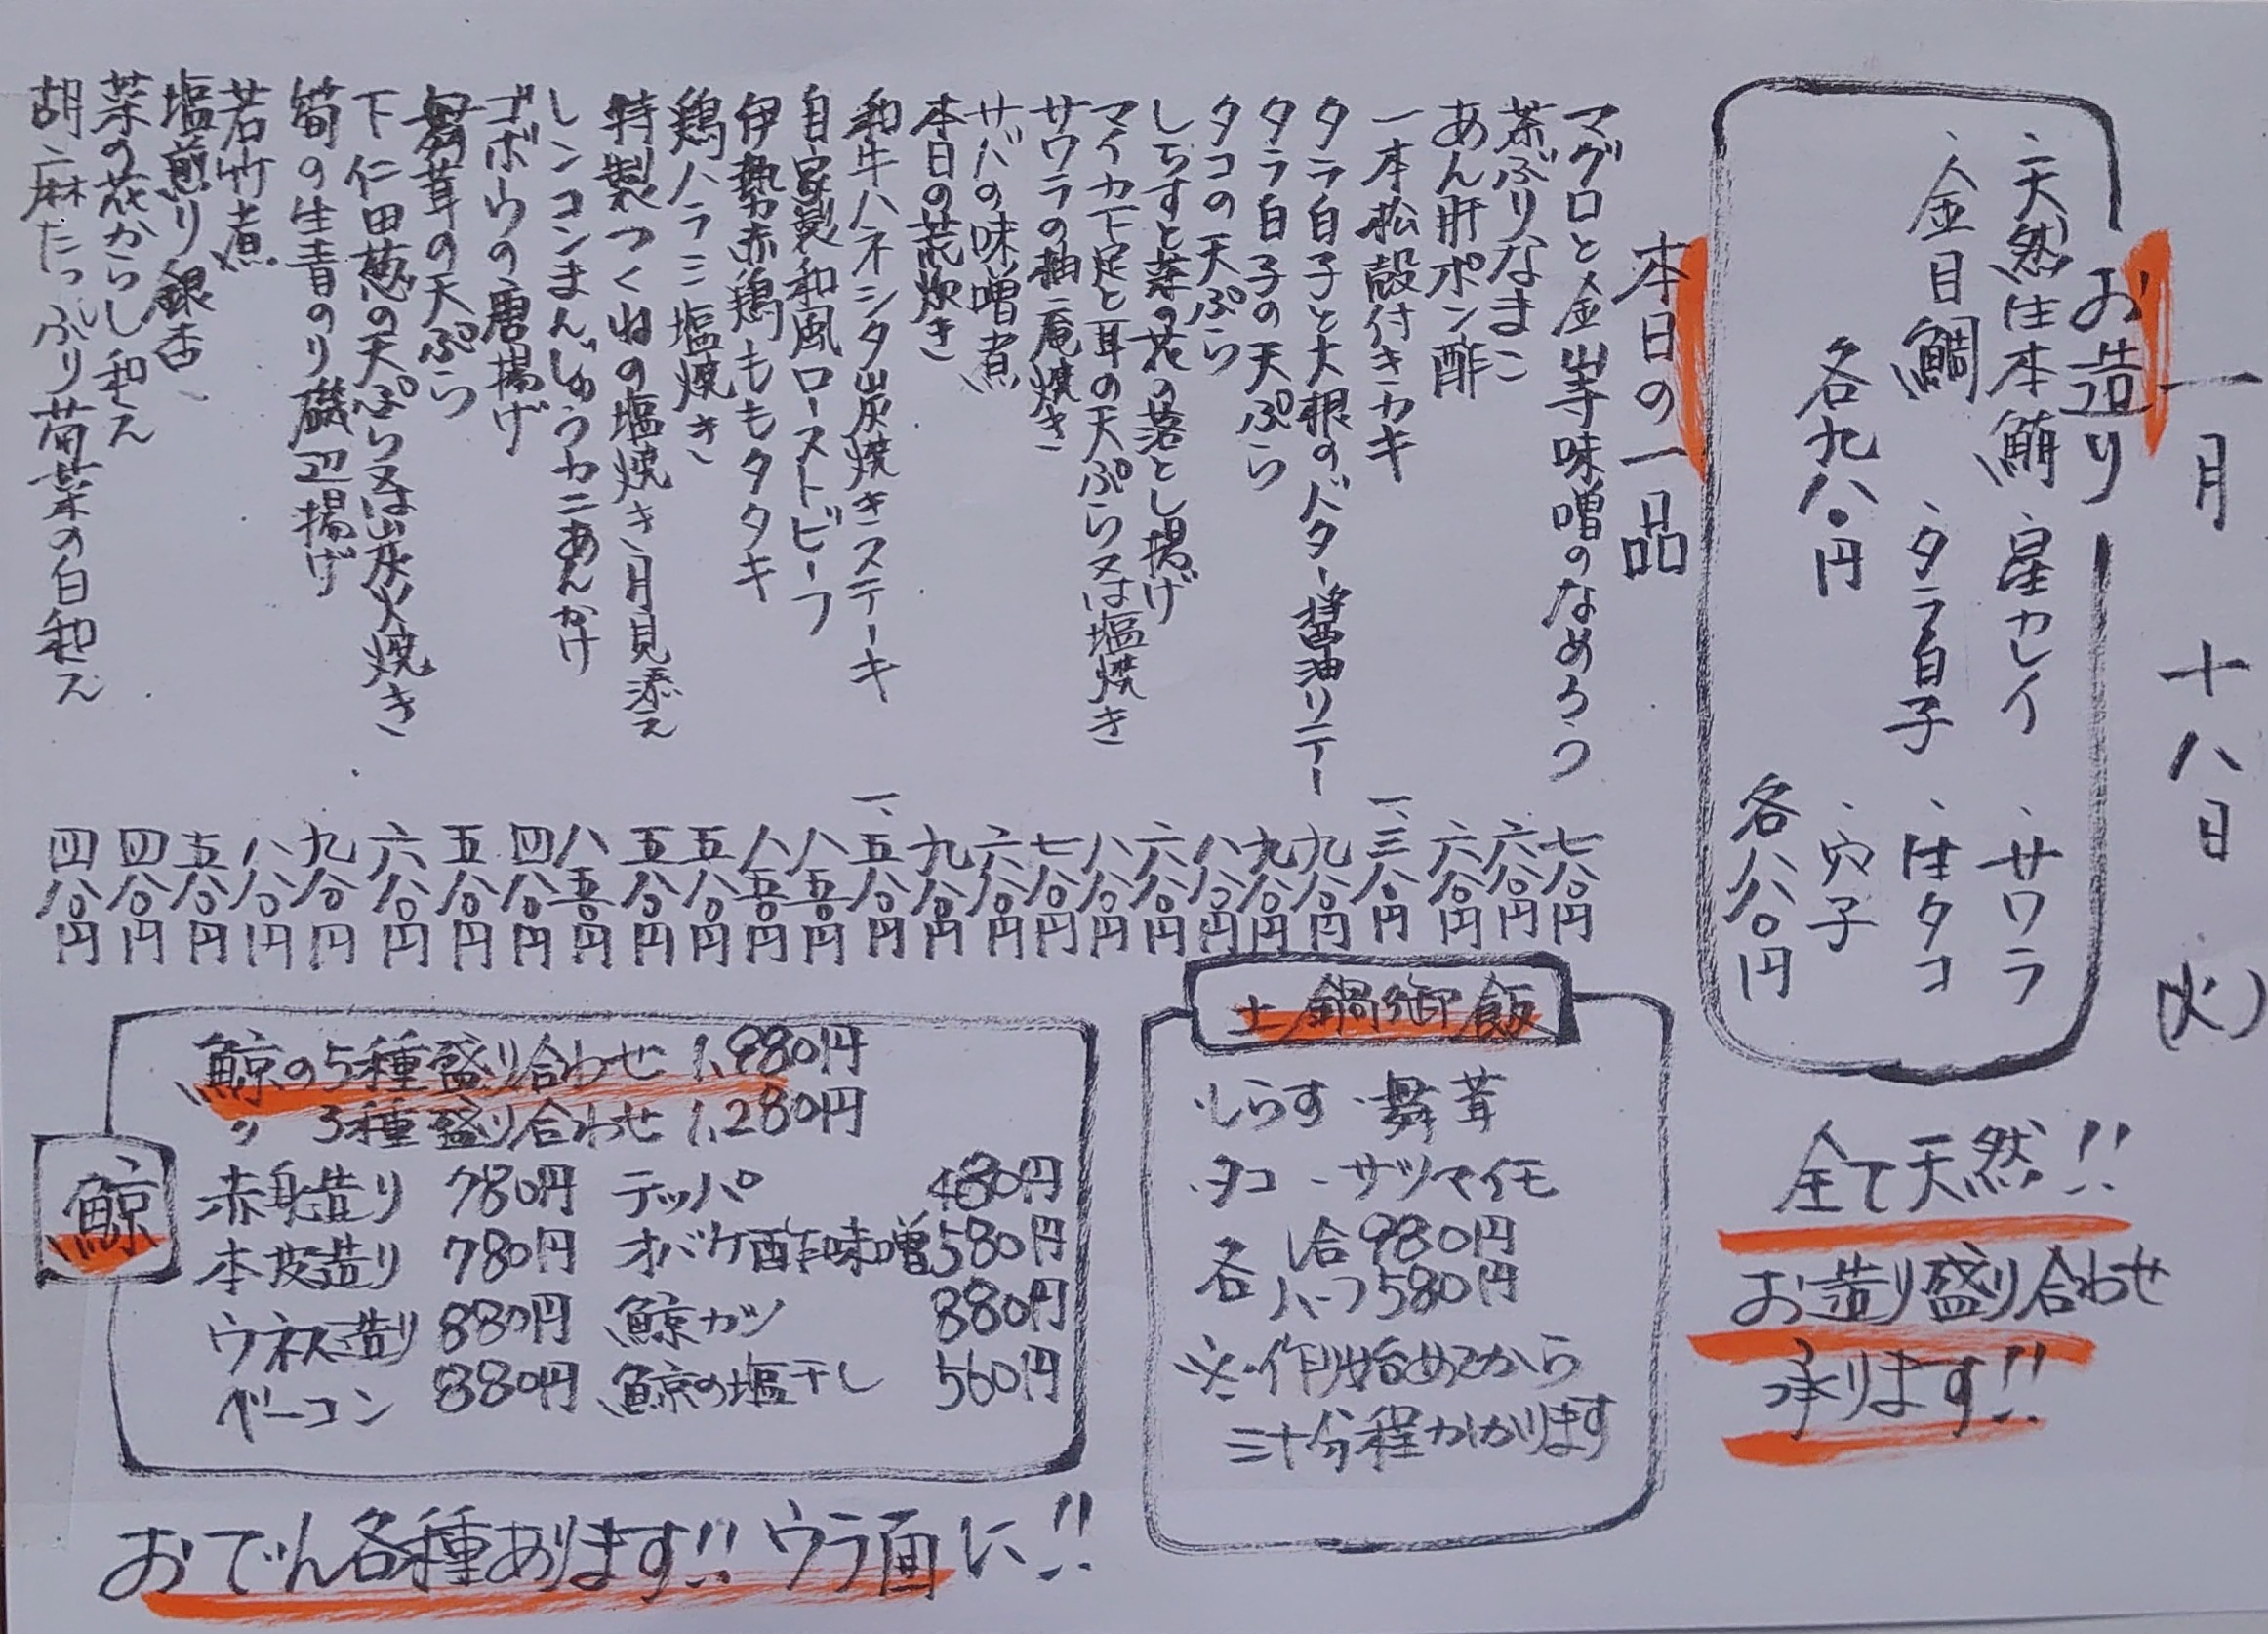 一月十八日(火)
お造り
・天然生本鮪 ・星カレイ ・サワラ
・金目鯛 ・タラ白子 ・生タコ
・穴子
各九八〇円
各八八〇円
全て天然!!
お造り盛り合わせ
承ります!!
本日の一品
マグロと金山寺味噌のなめろう 七八〇円
茶ぶりなまこ 六八〇円
あん肝ポン酢 六八〇円
一本松殻付きカキ 一、三八〇円
タラ白子と大根のバター醤油リテー 九八〇円
タラ白子の天ぷら 九八〇円
タコの天ぷら 八八〇円
しらすと菜の花の落とし揚げ 六八〇円
マイカ下足と耳の天ぷら又は塩焼き 八八〇円
サワラの柚庵焼き 七八〇円
サバの味噌煮 六八〇円
本日の荒炊き 九八〇円
和牛ハネシタ炭焼きステーキ 一、五八〇円
自家製和風ローストビーフ 八五〇円
伊勢赤鶏ももタタキ 八五〇円
鶏ハラミ塩焼き 五八〇円
特製つくねの塩焼き、月見添え 五八〇円
レンコンまんじゅうカニあんかけ 八五〇円
ゴボウの唐揚げ 四八〇円
舞茸の天ぷら 五八〇円
下仁田葱の天ぷら又は炭火焼き 六八〇円
筍の生青のり磯辺揚げ 九八〇円
若竹煮 八八〇円
塩煎り銀杏 五八〇円
菜の花からし和え 四八〇円
胡麻たっぷり菊菜の白和え 四八〇円
土鍋御飯
・しらす ・舞茸
・タコ ・サツマイモ
各 一合 980円
ハーフ 580円
※作り始めてから
三十分程かかります
鯨
鯨の5種盛り合わせ 1,980円
〃 3種盛り合わせ 1,280円
赤身造り 780円 テッパ 480円
本皮造り 780円 オバケ酢味噌 580円
ウネス造り 880円 鯨カツ 880円
ベーコン 880円 鯨の塩干し 560円
おでん各種あります!! ウラ面に!!